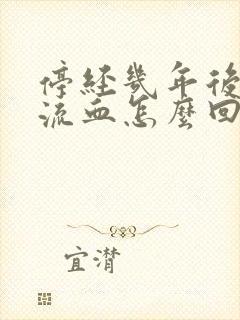 停經幾年後
流血怎麼回
宜潸